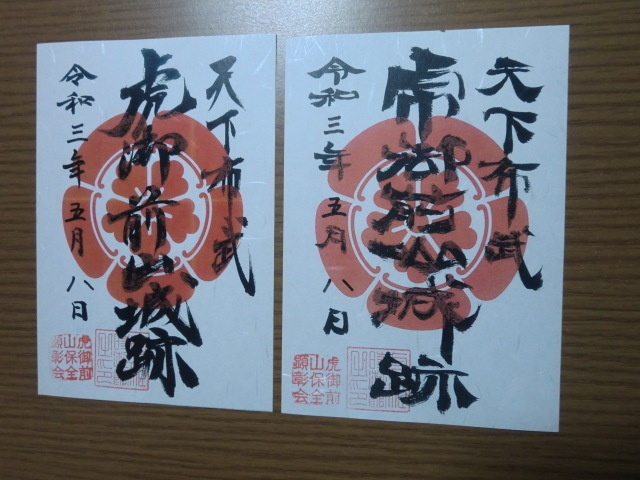 天下布武
虎御前山城跡
令和三年五月八日
虎御前
山保全
顕彰会
天下布武
虎御前山城跡
令和三年五月八日
虎御前
山保全
顕彰会